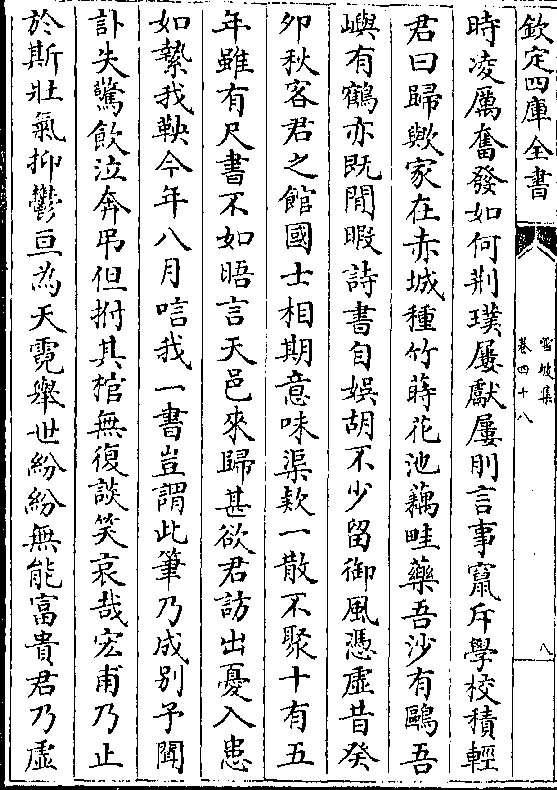 欽定四庫全書
雪坡集
卷四十八
八
時凌厲奮發如何荆璞屢獻屢刖言事竄斥學校積輕
君曰歸歟家在赤城種竹蒔花池藕畦藥吾沙有鷗吾
嶼有鶴亦既閒暇詩書自娯胡不少留御風憑虛昔癸
夘秋客君之館國士相期意味渠欵一散不聚十有五
年雖有尺書不如晤言天邑來歸甚欲君訪出憂入患
如縶我鞅今年八月唁我一書豈謂此筆乃成别予聞
訃失驚飲泣奔弔但拊其棺無復談笑哀哉宏甫乃止
於斯壯氣抑鬱亘為天霓舉世紛紛無能富貴君乃虛